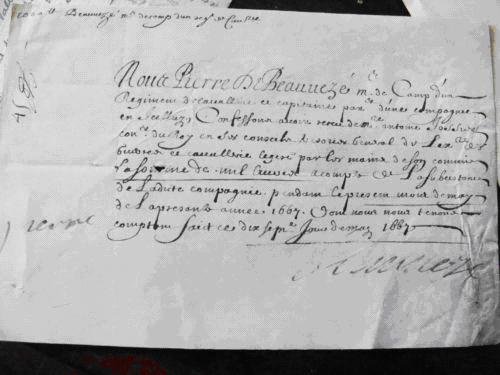 Beauvezé m^e de camp d'un reg^t de Caval^e
Nous Pierre De Beauvezé m^e de Camp d'un
Regiment de cavallerie et capitaine par^er d'une compagnie
en Icelluy, Confessons avoir receu de m^re antoine
con^er du Roy en ses conseils tresorier General de Lex^re des
guerres et cavallerie legere par les mains de son commis
la somme de mil livres acompte de La subsistance
de Ladite compagnie pendant le present mois de may
de La presente année 1667. Dont nous nous tenons
comptent faict ce dix sep^me Jour de may 1667
Beauvezé